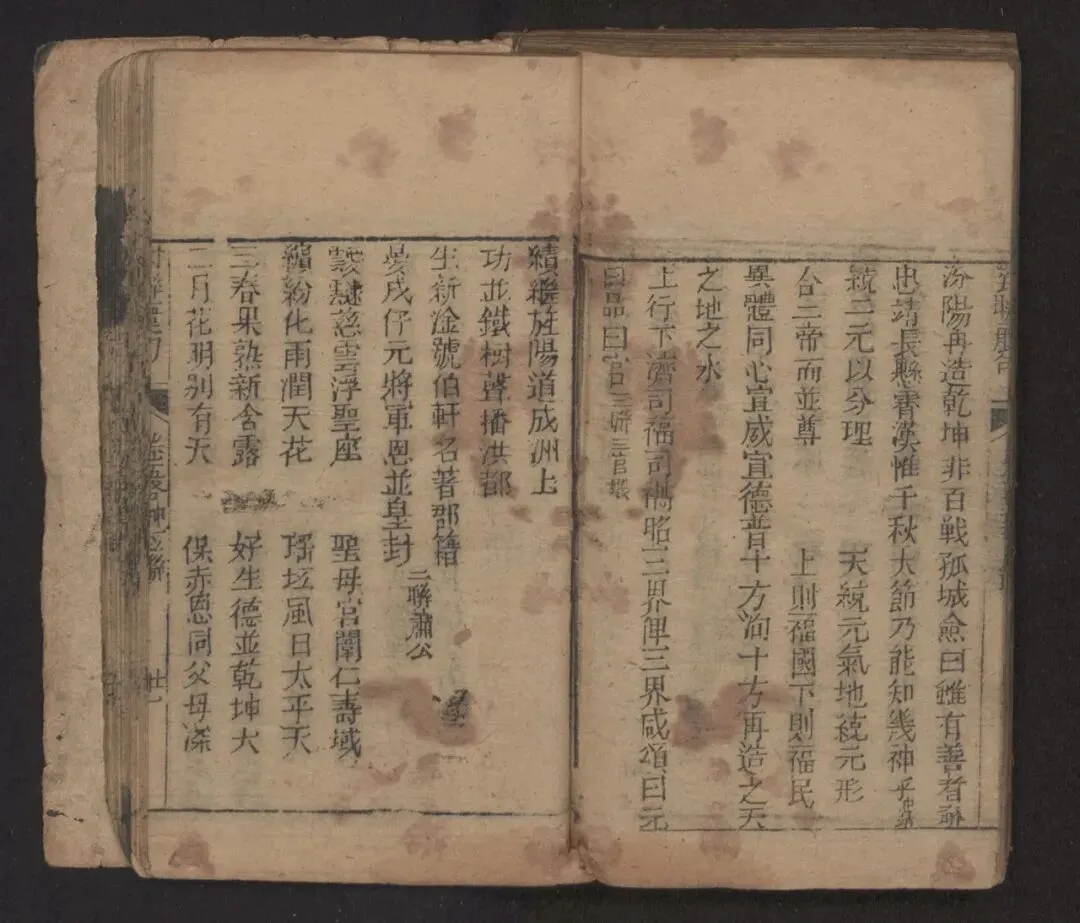 汾陽再造乾坤非百戰孤城僉曰雖有善者聯
忠靖長懸霄漢惟千秋大節乃能知幾神乎
統三元以分理 天統元氣地統元形
合三帝而並尊 上則福國下則福民
異體同心宣威宣德普十方洵十方再造之天
之地之水
上行下濟司福司禍昭三界俾三界咸頌曰元
曰品曰官三聯三官殿
績繼旌陽道成洲上
功並鐵樹聲播洪都
生新淦號伯軒名著郡籍
晏戌仔元將軍恩並皇封
二聯蕭公
靉靆慈雲浮聖座 聖母宮闈仁壽域
繽紛化雨潤天花 瑤坛風日太平天
三春果熟新含露 好生德並乾坤大
二月花明別有天 保赤恩同父母深
廿一